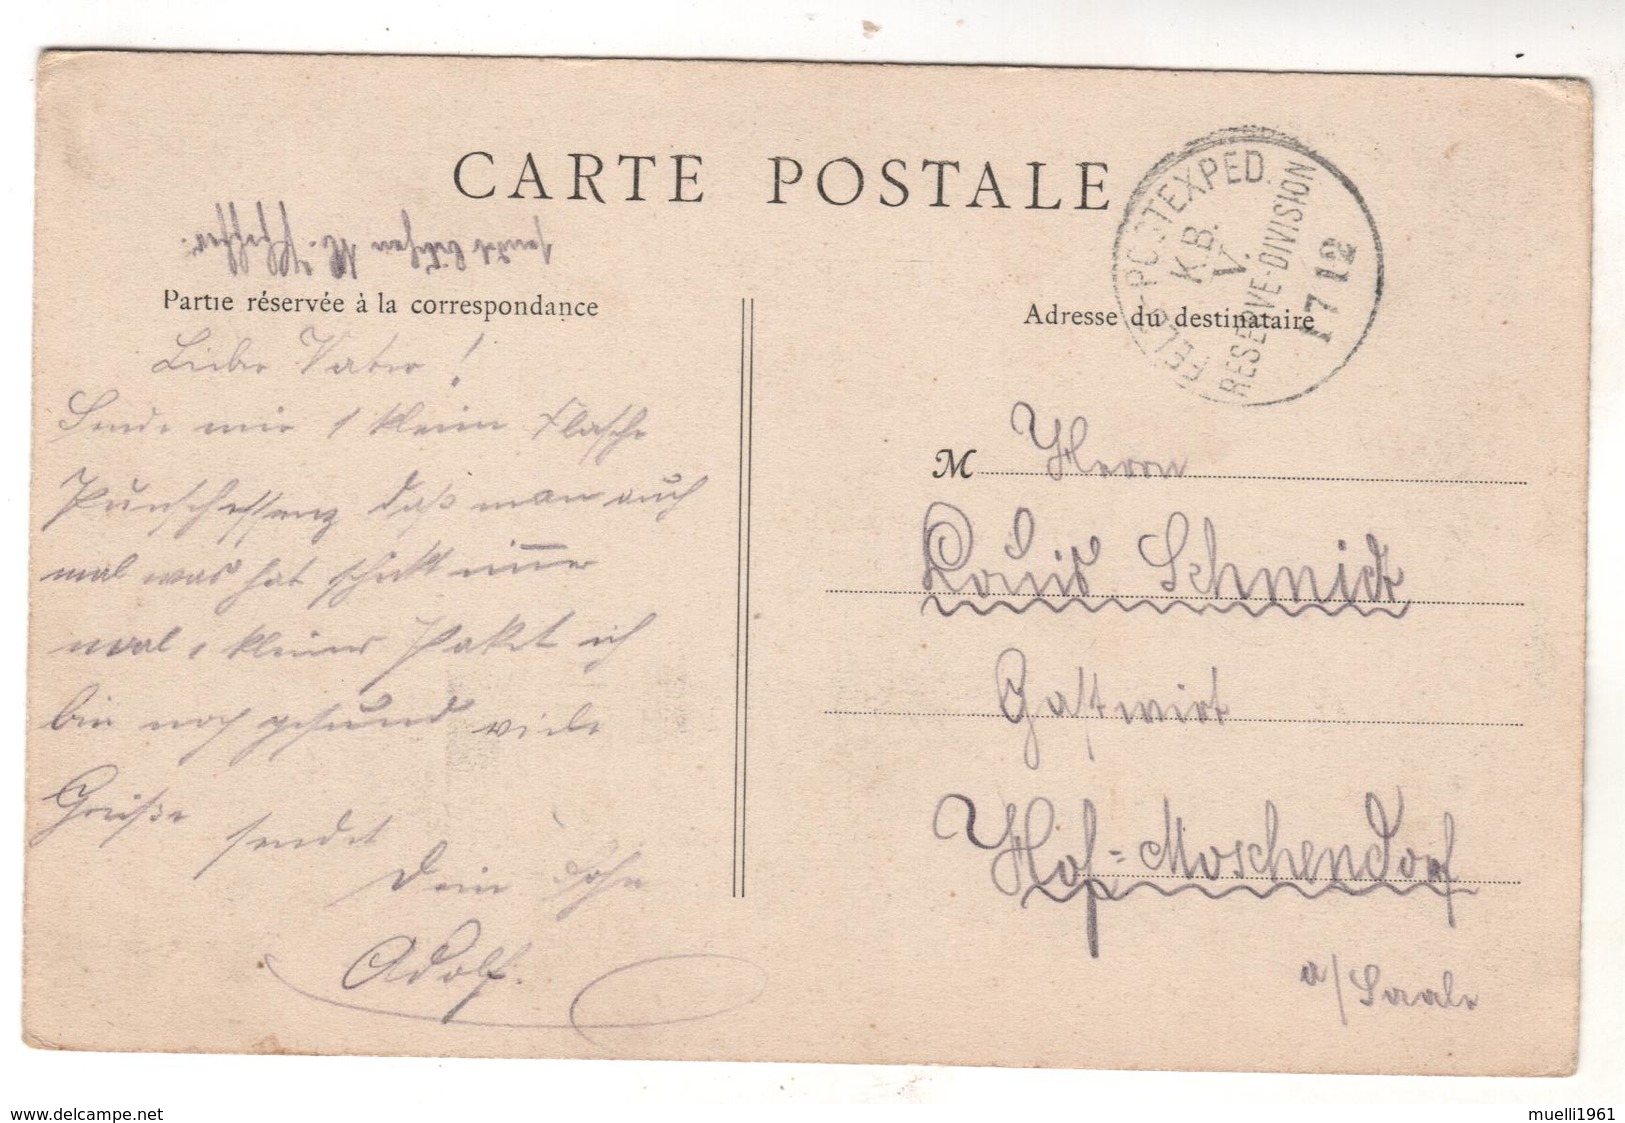 CARTE POSTALE
FELD-POSTEXPED.
K.B.
V.
RESERVE-DIVISION
17 12
Partie réservée à la correspondance
Adresse du destinataire
Lieber Vater!
Sende mir 1 kleine Flasche
Punschessenz daß man auch
mal was hat schickt immer
mal 1 kleines Paket ich
bin noch gesund viele
Grüße sendet
Dein Sohn
Adolf.
M Herrn
Louis Schmidt
Gastwirt
Hof-Moschendorf
a/Saale
www.delcampe.net
muelli1961